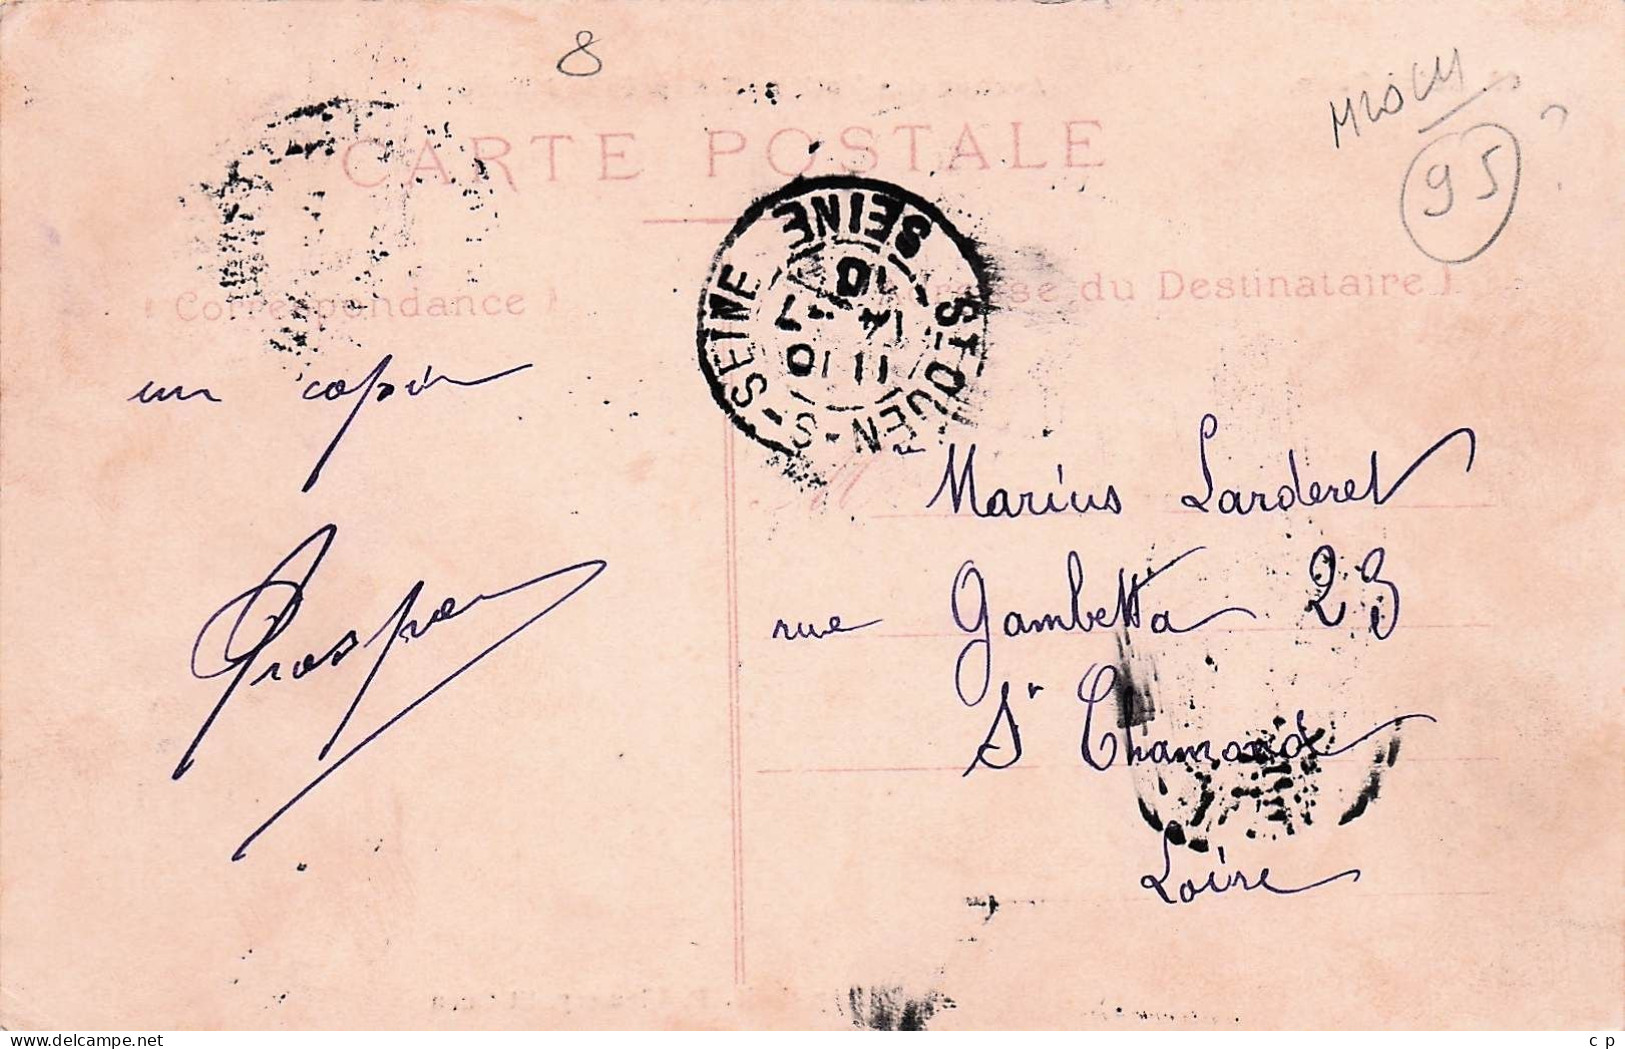 8
95
CARTE POSTALE
( Correspondance )
Adresse du Destinataire )
ST-OUEN-S-SEINE
SEINE
un copin
Prosper
Mre Marius Larderet
rue Gambetta 23
St Chamond
Loire
www.delcampe.net
c p